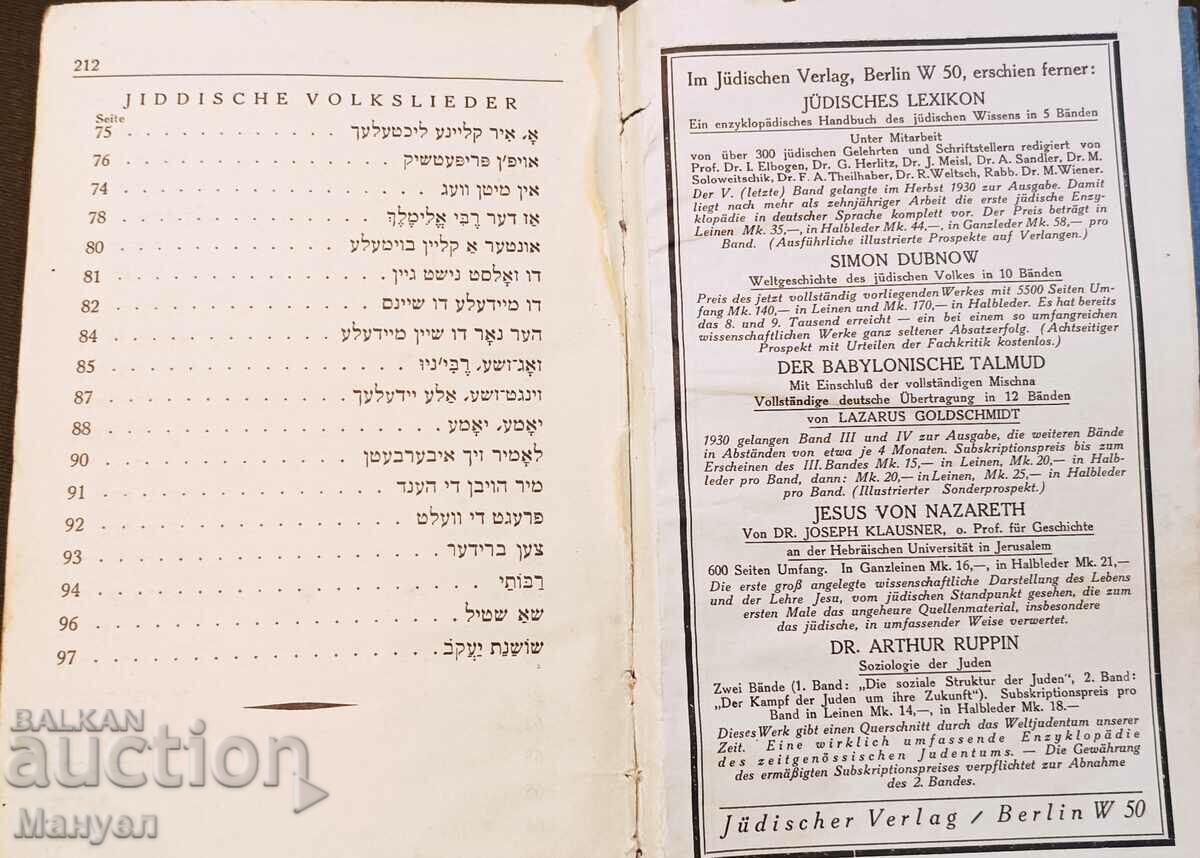 212
JIDDISCHE VOLKSLIEDER
Seite
אָ, אִיר קליינע ליכטעלעך 75
אויפ׳ן פּריפּעטשיק 76
אין מיטן וועג 74
אַז דער רֶבִּי אֱלִימֶלֶךְ 78
אונטער אַ קליין בוימעלע 80
דו זאָלסט נישט גיין 81
דו מיידעלע דו שיינס 82
הער נאָר דו שיין מיידעלע 84
זאָג־זשע, רֶבִּי׳ניו 85
זינגט־זשע, אַלע יידעלעך 87
יאָמע, יאָמע 88
לאָמיר זיך איבערבעטן 90
מיר הויבן די הענד 91
פרעגט די וועלט 92
צען ברידער 93
רַבּוֹתַי 94
שאַ שטיל 96
שׁוֹשַׁנַת יַעֲקֹב 97
Im Jüdischen Verlag, Berlin W 50, erschien ferner:
JÜDISCHES LEXIKON
Ein enzyklopädisches Handbuch des jüdischen Wissens in 5 Bänden
Unter Mitarbeit
von über 300 jüdischen Gelehrten und Schriftstellern redigiert von
Prof. Dr. I. Elbogen, Dr. G. Herlitz, Dr. J. Meisl, Dr. A. Sandler, Dr. M.
Soloweitschik, Dr. F. A. Theilhaber, Dr. R. Weltsch, Rabb. Dr. M. Wiener.
Der V. (letzte) Band gelangte im Herbst 1930 zur Ausgabe. Damit
liegt nach mehr als zehnjähriger Arbeit die erste jüdische Enzy-
klopädie in deutscher Sprache komplett vor. Der Preis beträgt in
Leinen Mk. 35,—, in Halbleder Mk. 44,—, in Ganzleder Mk. 58,— pro
Band. (Ausführliche illustrierte Prospekte auf Verlangen.)
SIMON DUBNOW
Weltgeschichte des jüdischen Volkes in 10 Bänden
Preis des jetzt vollständig vorliegenden Werkes mit 5500 Seiten Um-
fang Mk. 140,— in Leinen und Mk. 170,— in Halbleder. Es hat bereits
das 8. und 9. Tausend erreicht — ein bei einem so umfangreichen
wissenschaftlichen Werke ganz seltener Absatzerfolg. (Achtseitiger
Prospekt mit Urteilen der Fachkritik kostenlos.)
DER BABYLONISCHE TALMUD
Mit Einschluß der vollständigen Mischna
Vollständige deutsche Übertragung in 12 Bänden
von LAZARUS GOLDSCHMIDT
1930 gelangen Band III und IV zur Ausgabe, die weiteren Bände
in Abständen von etwa je 4 Monaten. Subskriptionspreis bis zum
Erscheinen des III. Bandes Mk. 15,— in Leinen, Mk. 20,— in Halb-
leder pro Band, dann: Mk. 20,— in Leinen, Mk. 25,— in Halbleder
pro Band. (Illustrierter Sonderprospekt.)
JESUS VON NAZARETH
Von DR. JOSEPH KLAUSNER, o. Prof. für Geschichte
an der Hebräischen Universität in Jerusalem
600 Seiten Umfang. In Ganzleinen Mk. 16,—, in Halbleder Mk. 21,—
Die erste groß angelegte wissenschaftliche Darstellung des Lebens
und der Lehre Jesu, vom jüdischen Standpunkt gesehen, die zum
ersten Male das ungeheure Quellenmaterial, insbesondere
das jüdische, in umfassender Weise verwertet.
DR. ARTHUR RUPPIN
Soziologie der Juden
Zwei Bände (1. Band: „Die soziale Struktur der Juden“, 2. Band:
„Der Kampf der Juden um ihre Zukunft“). Subskriptionspreis pro
Band in Leinen Mk. 14,—, in Halbleder Mk. 18.—
Dieses Werk gibt einen Querschnitt durch das Weltjudentum unserer
Zeit. Eine wirklich umfassende Enzyklopädie
des zeitgenössischen Judentums. — Die Gewährung
des ermäßigten Subskriptionspreises verpflichtet zur Abnahme
des 2. Bandes.
Jüdischer Verlag / Berlin W 50
BALKAN
auction
Мануел